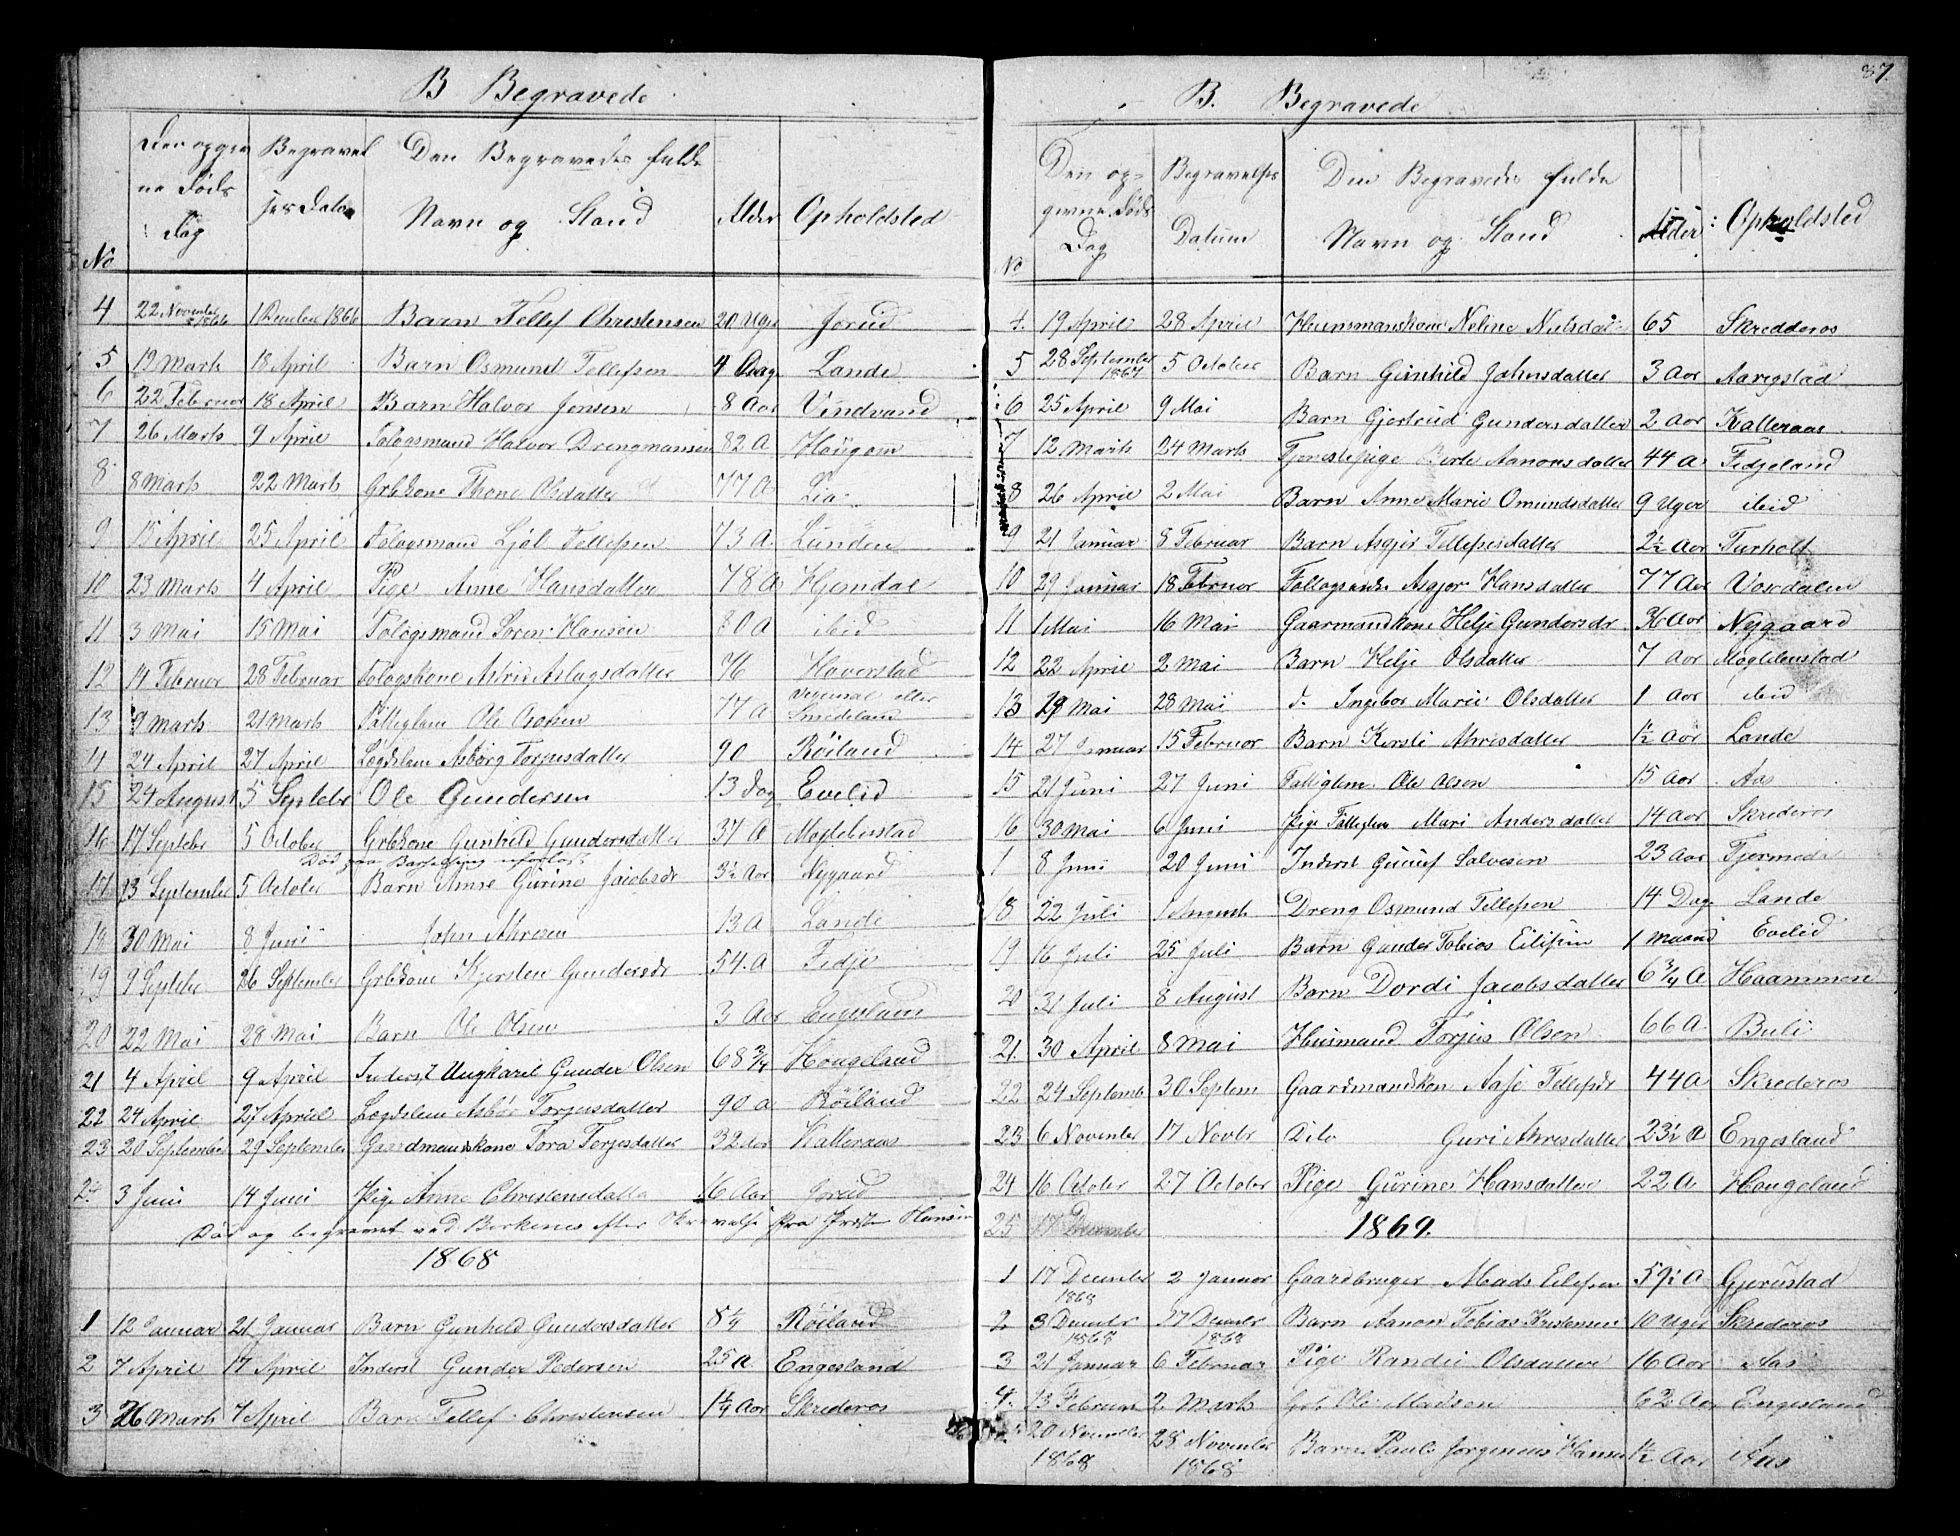 B Begravede
Den opgivne Føds Dag
Begravelses Datum
Den Begravedes fulde Navn og Stand
Alder
Opholdsted
No
4 22 November 1866 1 December 1866 Barn Tellef Christensen 20 Uger Jorud
5 19 Marts 18 April Barn Osmund Tellefsen 4 Dag Lande
6 22 Februar 18 April Barn Halvor Jensen 8 Aar Vindvand
7 26 Marts 9 April Fologsmand Halvor Drengmansen 82 A Høigem
8 8 Marts 22 Marts Grbkone Thone Olsdatter 77 A Lia
9 15 April 25 April Fologsmand Ljøl Tellefsen 73 A Lunden
10 23 Marts 4 April Pige Anne Hansdatter 78 A Hjendal
11 3 Mai 15 Mai Fologsmand Søren Hansen 80 A ibid
12 14 Februar 28 Februar Fologskone Astrie Aslagsdatter 76 Haverstad
13 9 Marts 21 Marts Fattiglem Ole 77 A eller Smedeland
14 24 April 27 April Lægdslem Asbørg Torjusdatter 90 Røiland
15 24 August 5 Septebr Ole Gundersen 13 Dag Evelid
16 17 Septebr 5 October Grbkone Gunhild Gundersdatter 37 A Møglebustad
Død paa Barselseng
17 13 September 5 October Barn Anne Gurine Jacobsdr 3½ Aar Nygaard
18 30 Mai 8 Juni John Ahresen 13 A Lande
19 9 Septebr 26 September Grbkone Kjersten Gundersdr 54 A Fedje
20 22 Mai 28 Mai Barn Ole Olsen 3 Aar Engesland
21 4 April 9 April Inderst Ungkaril Gunder Olsen 68 3/4 Hougeland
22 24 April 27 April Lægdslem Asbør Torjusdatter 90 A Røiland
23 20 September 29 September Gaardmandskone Tora Torjesdatter 32 Aar Kalleraas
24 3 Juni 14 Juni Pige Anne Christensdatter 6 Aar Jorud
Død og begravet ved Birkenes efter Skrivelse fra Præsten Hansen
1868
1 12 Januar 21 Januar Barn Gunhild Gundersdatter 8 1/4 Røiland
2 7 April 17 April Inderst Gunder Pedersen 25 A Engesland
3 26 Marts 7 April Barn Tellef Christensen 1 1/4 Aar Skrederos
87
B. Begravede
Den opgivne Føds Dag
Begravelses Datum
Den Begravedes fulde Navn og Stand
Alder
Opholdsted
No
4 19 April 28 April Huusmanskone Neline Nielsdat 65 Skredderos
5 28 September 1867 5 October Barn Gunhild Johnsdatter 3 Aar Aavigstad
6 25 April 9 Mai Barn Gjertrud Gundersdatter 2 Aar Kalleraas
7 12 Marts 24 Marts Tjenestepige Berte Aanonsdatter 44 A Fedjeland
8 26 April 2 Mai Barn Anne Marie Omundsdatter 9 Uger ibid
9 21 Januar 8 Februar Barn Asgjer Tellefsesdatter 2½ Aar Furholt
10 29 Januar 18 Februar Asgjer Hansdatter 77 Aar Vosdalen
11 1 Mai 16 Mai Gaarmandkone Helje Gundersdr 36 Aar Nygaard
12 22 April 2 Mai Barn Helje Olsdatter 7 Aar Moglebustad
13 29 Mai 28 Mai d. Ingebor Marie Olsdatter 1 Aar ibid
14 27 Januar 15 Februar Barn Kersti Ahresdatter 1½ Aar Lande
15 21 Juni 27 Juni Fattiglem Ole Olsen 15 Aar Aas
16 30 Mai 6 Juni Pige Fattiglem Mari Andersdatter 14 Aar Skrederos
1 8 Juni 20 Juni Inderst Salvesen 23 Aar
18 22 Juli 1 August Dreng Osmund Tellefsen 14 Dage Lande
19 16 Juli 25 Juli Barn Gunder Tobias Eilefsen 1 Maaned Evelid
20 31 Juli 8 August Barn Dordi Jacobsdatter 6 3/4 A Haammen
21 30 April 8 Mai Huusmand Torjus Olsen 66 A Buli
22 24 Septemb 30 Septem Gaardmandskon Aase Tellefsdr 44 A Skrederos
23 6 November 17 Novbr Dito Guri Ahresdatter 23½ A Engesland
24 16 October 27 October Pige Gurine Hansdatter 22 A Hougeland
25 17 December
1869.
1 17 December 1868 2 Januar Gaardbruger Mads Eilefsen 59½ A Gjerustad
2 3 December 1868 27 December 1868 Barn Aanon Tobias Kristensen 10 Uger Skrederos
3 21 Januar 6 Februar Pige Randei Olsdatter 16 Aar Aas
4 13 Februar 2 Marts Grb Ole Madsen 62 Aar Engesland
5 20 November 1868 28 November 1868 Barn Paul Jorgenius Hansen 1½ Aar Aas